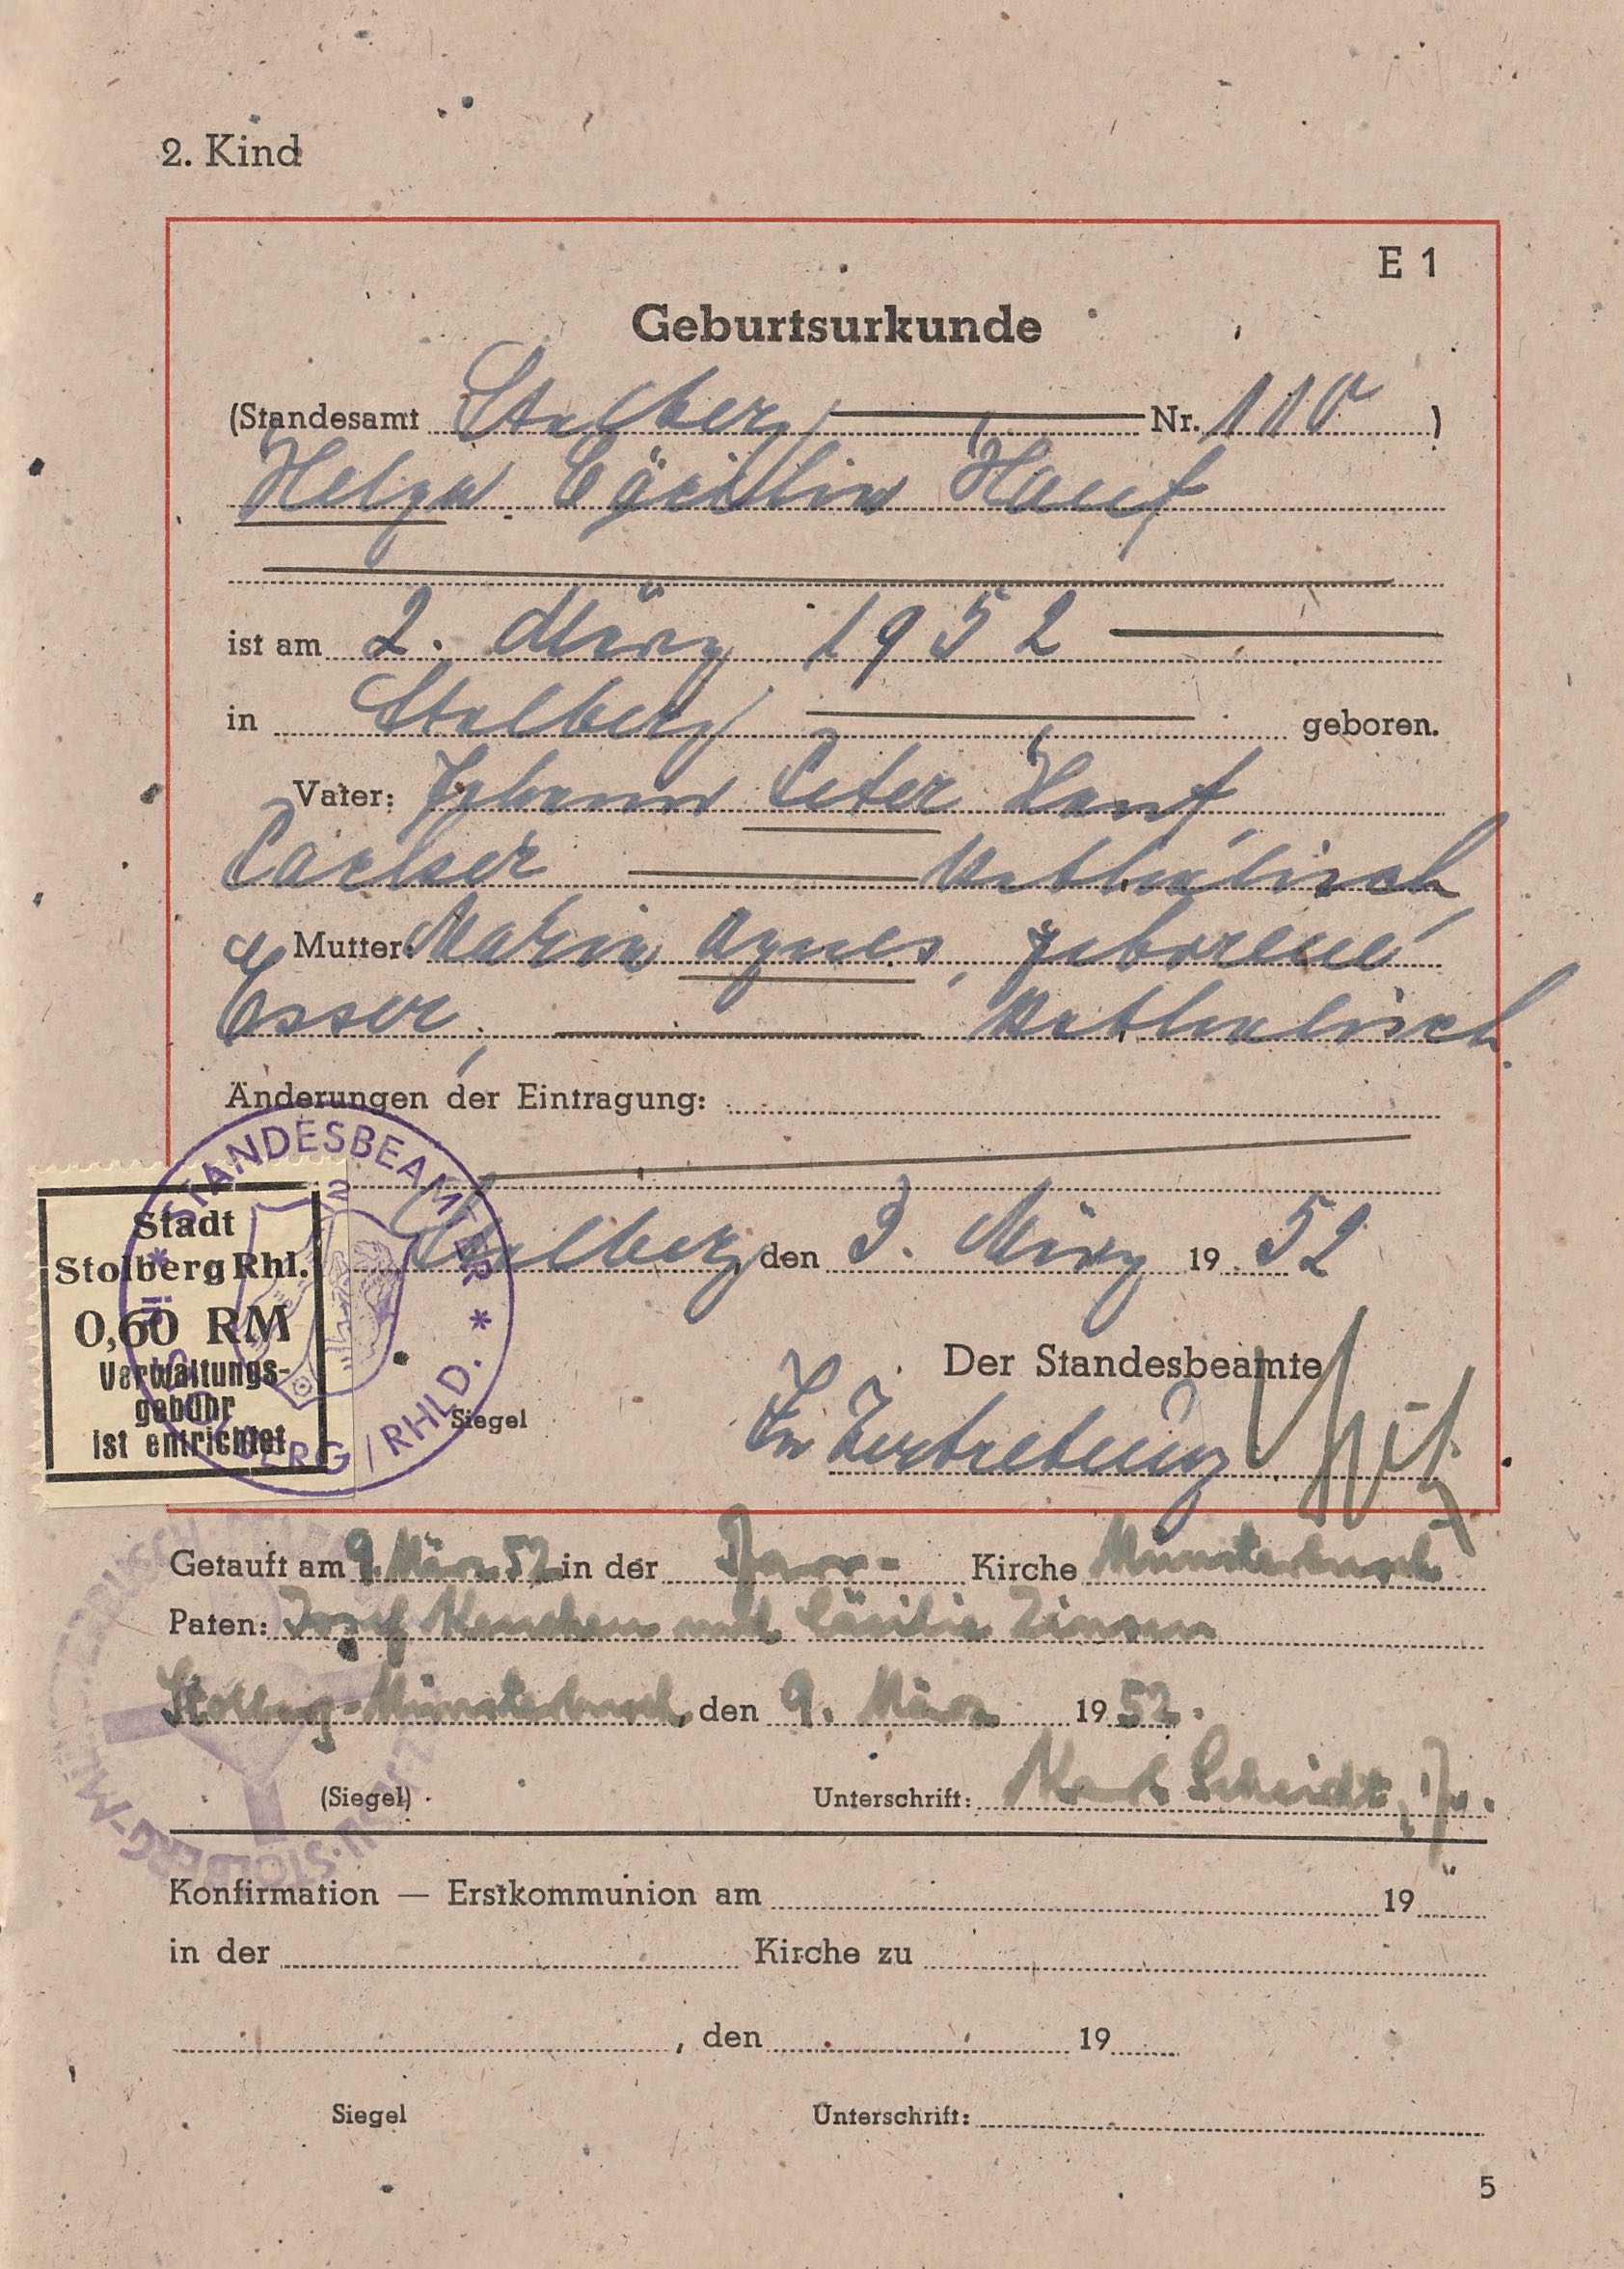 2. Kind
E 1
Geburtsurkunde
(Standesamt Stolberg Nr. 110)
Helga Cäcilia Hanf
ist am 2. März 1952
in Stolberg geboren.
Vater: Johann Peter Hanf,
katholisch
Mutter: Maria Agnes, geborene
Esser, katholisch
Änderungen der Eintragung:
Stolberg, den 3. März 1952
STANDESBEAMTER * STOLBERG/RHLD. *
Stadt
Stolberg Rhl.
0,60 RM
Verwaltungs-
gebühr
ist entrichtet
Der Standesbeamte
Siegel
In Vertretung
Getauft am 9. März 52 in der Pfarr- Kirche Münsterbusch
Paten: Josef und Cäcilia Zimmen
Stolberg-Münsterbusch, den 9. März 1952.
(Siegel) Unterschrift: Scheidt, Pfr.
Konfirmation — Erstkommunion am 19
in der Kirche zu
, den 19
Siegel Unterschrift:
5